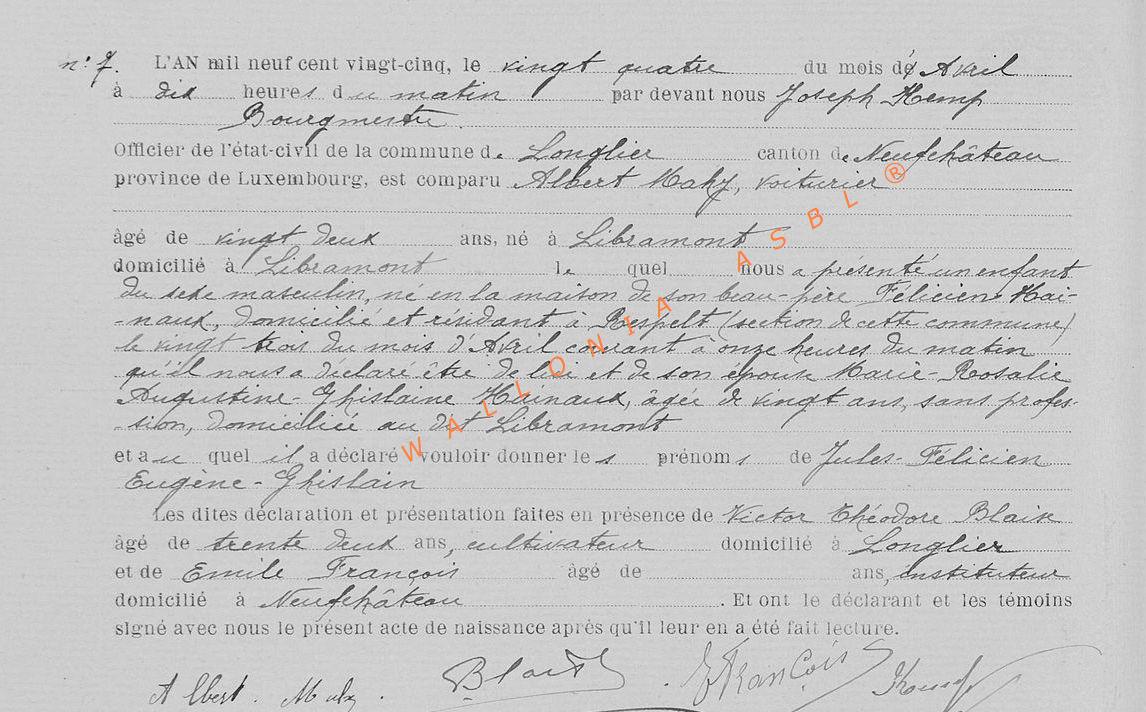 n° 7. L'AN mil neuf cent vingt-cinq, le vingt quatre du mois d' Avril
à dix heures du matin par devant nous Joseph Kemp
Bourgmestre.
Officier de l'état-civil de la commune de Longlier canton de Neufchâteau
province de Luxembourg, est comparu Albert Mahy, voiturier
âgé de vingt deux ans, né à Libramont
domicilié à Libramont le quel nous a présenté un enfant
du sexe masculin, né en la maison de son beau-père Félicien Hai-
-naux, domicilié et résidant à Respelt (section de cette commune)
le vingt trois du mois d'Avril courant à onze heures du matin
qu'il nous a déclaré être de lui et de son épouse Marie-Rosalie
Augustine-Ghislaine Hainaux, âgée de vingt ans, sans profes-
-sion, domiciliée au dit Libramont
et au quel il a déclaré vouloir donner les prénoms de Jules-Félicien
Eugène-Ghislain
Les dites déclaration et présentation faites en présence de Victor Théodore Blaise
âgé de trente deux ans, cultivateur domicilié à Longlier
et de Emile François âgé de ans, instituteur
domicilié à Neufchâteau. Et ont le déclarant et les témoins
signé avec nous le présent acte de naissance après qu'il leur en a été fait lecture.
Albert. Mahy. Blaise E François
WALLONIA ASBL ®